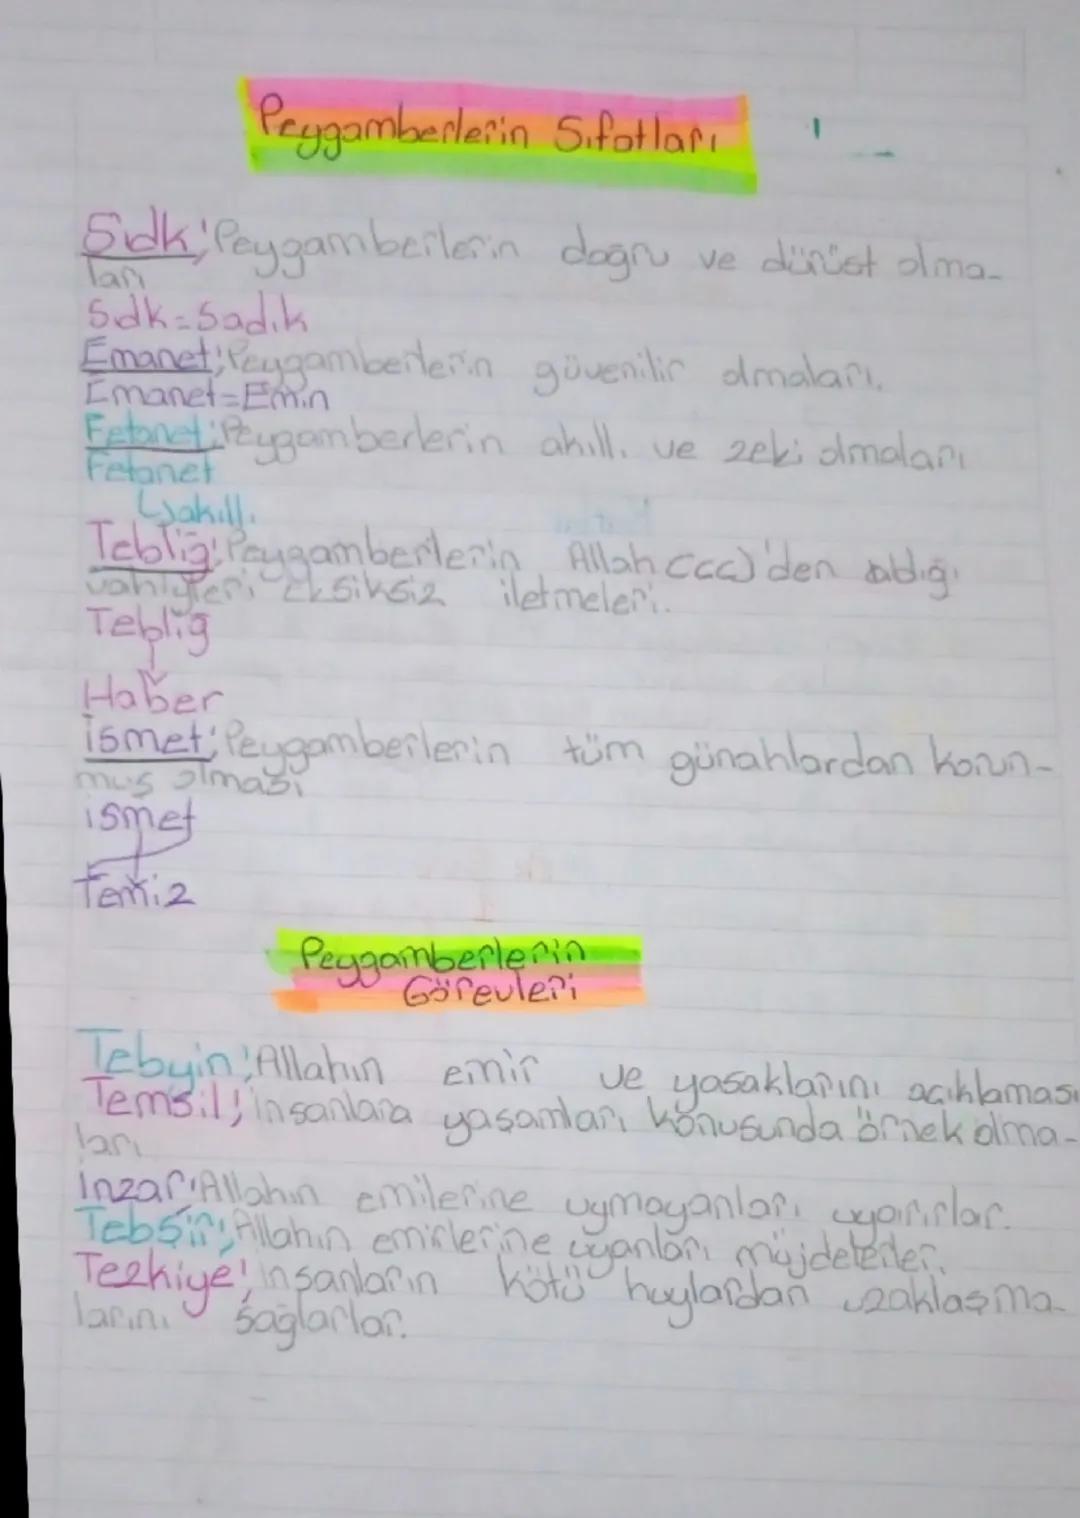 Peygamberlerin Sıfatları
Sıdk; Peygamberlerin doğru ve dürüst olma-
ları
Sıdk=Sadık
Emanet; Peygamberlerin güvenilir olmaları.
Emanet=Emin
Fetanet; Peygamberlerin akıllı ve zeki olmaları
Fetanet
↳akıllı
Tebliğ; Peygamberlerin Allah (cc)'den aldığı
vahiyleri eksiksiz iletmeleri.
Tebliğ
Haber
İsmet; Peygamberlerin tüm günahlardan korun-
muş olması
ismet
Temiz
Peygamberlerin
Görevleri
Tebyin; Allahın emir ve yasaklarını açıklaması
Temsil; insanlara yaşamları konusunda örnek olma-
ları
İnzar; Allahın emilerine uymayanları uyarırlar.
Tebşir; Allahın emirlerine uyanları müjdelerler.
Tezkiye; insanların kötü huylardan uzaklaşma-
larını sağlarlar.